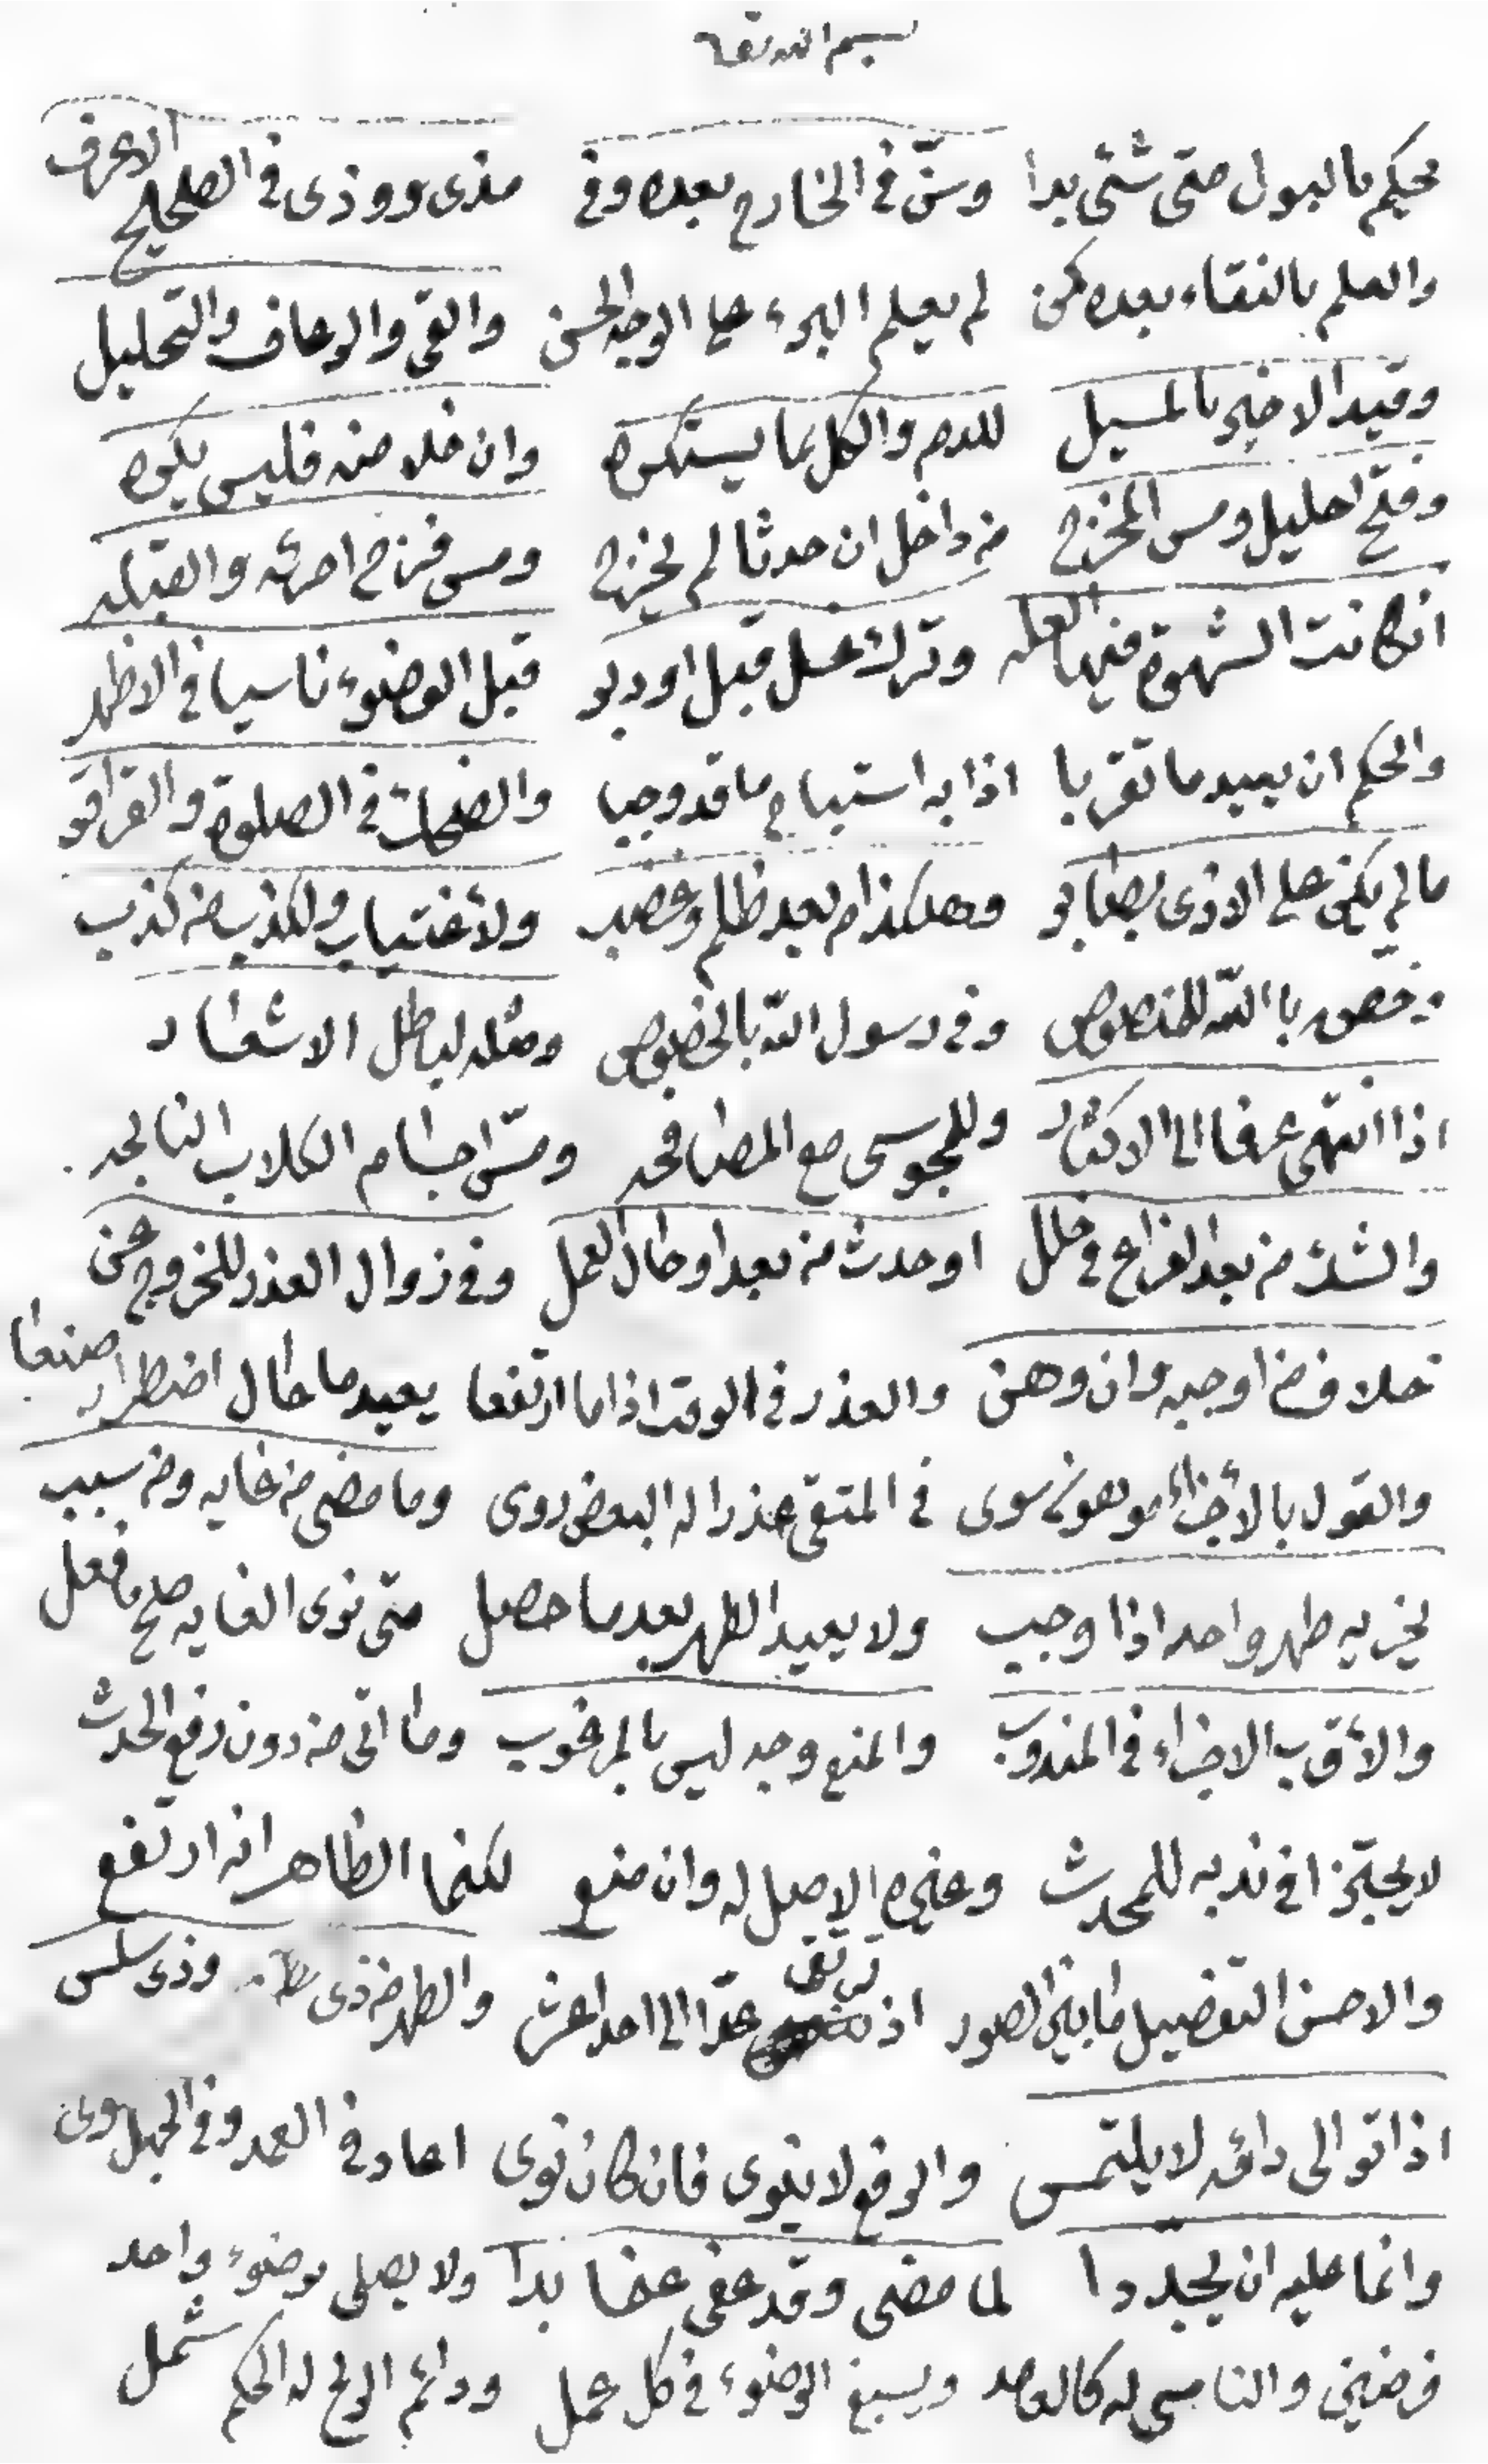 بسم الله تعا
يحكم بالبول متى شئ بدا وسن في الخارج بعده وفي مذى وودى في الصحيح الاعرف
والعلم بالنقاء بعده كمن لم يعلم البرء على الوجه الحسن والقى والرعاف والتحليل
وقيد الاخير بالمسيل للدم والكل بما يستكره وان خلا منه فليس يكره
وفتح احليل ومس المخرج من داخل ان حدثا لم يخرج ومس فرج امرئه والقبله
ان كانت الشهوة فيها العله وترك غسل قبل او دبر قبل الوضوء ناسيا في الاظهر
والحكم ان يعيد ما تقربا اذا به استباح ما قد وجبا والضحك في الصلوة والقراقر
ما لم يكن على الاذى يصابر وهكذا من بعد ظلم وغضب ولاغتياب ولكذب من كذب
وخص بالله للمنصوص وفي رسول الله بالخصوص ومثله لباطل الاشعار
اذا انتهى عرفا الى الاكثار وللمجوسي مع المصافحه ومس اجسام الكلاب النابحه
والشك من بعد الفراغ في خلل او حدث من بعد او حال العمل وفي زوال العذر للخروج عن
خلاف من اوجبه وان وهن والعذر في الوقت اذا ما ارتفعا يعيد ما حال اضطرار صنعا
والقول بالأجزاء موهون سوى في المتقى عذرا له البعض روى وما مضى من غايه ومن سبب
يجزيه طهر واحد اذا وجب ولا يعيد الطهر بعد ما حصل متى نوى الغايه صح ما فعل
والأقرب الاجزاء في المندوب والمنع وجه ليس بالمرغوب وما اتى من دون رفع الحدث
لا يجتزا في ندبه للمحدث وغيره الاصل له وان منع لكنما الظاهر انه ارتفع
والاحسن التفصيل ما بين الصور اذ ترتقى عدا الى احد عشر والطهر من ذى وذى سلس
اذا توالى دائه لا يلتمس والرفع لا ينوى فان كان نوى اعاد في العمد وفي الجهل روى
وانما عليه ان يجددا لما مضى وقد عفى عما بدا ولا يصلى بوضوء واحد
فرضين والناسى له كالعامد ويسبغ الوضوء في كل عمل ودائم الريح له الحكم شمل